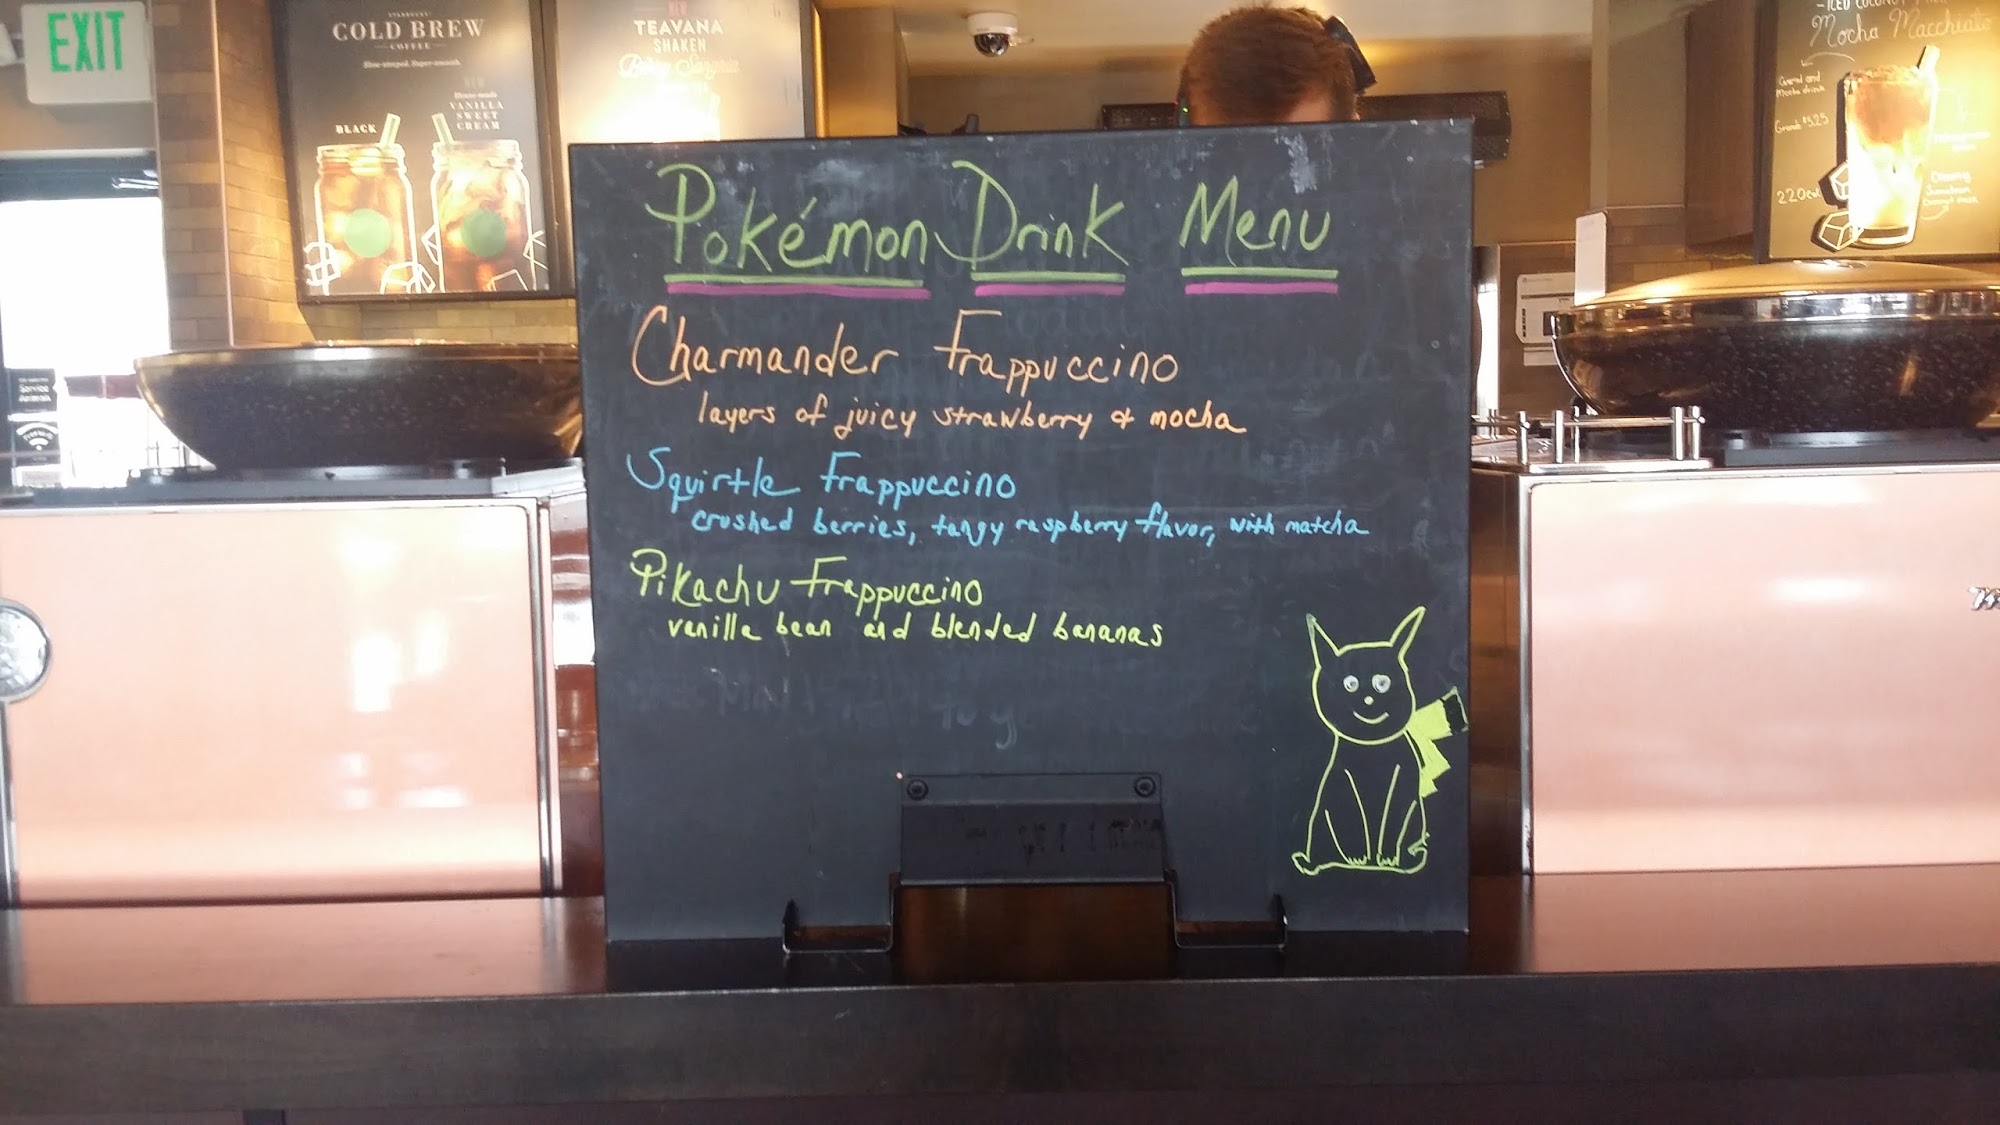 EXIT
STARBUCKS
COLD BREW
COFFEE
Slow-steeped. Super-smooth.
BLACK
NEW
House-made
VANILLA
SWEET
CREAM
NEW
TEAVANA
SHAKEN
Berry Sangria
Pokémon Drink Menu
Charmander Frappuccino
layers of juicy strawberry & mocha
Squirtle Frappuccino
crushed berries, tangy raspberry flavor, with matcha
Pikachu Frappuccino
vanilla bean and blended bananas
Mocha Macchiato
Caramel and
Mocha drink
Grande $5.25
220cal
Creamy
Sumatran
Coconut milk
Service
Animals